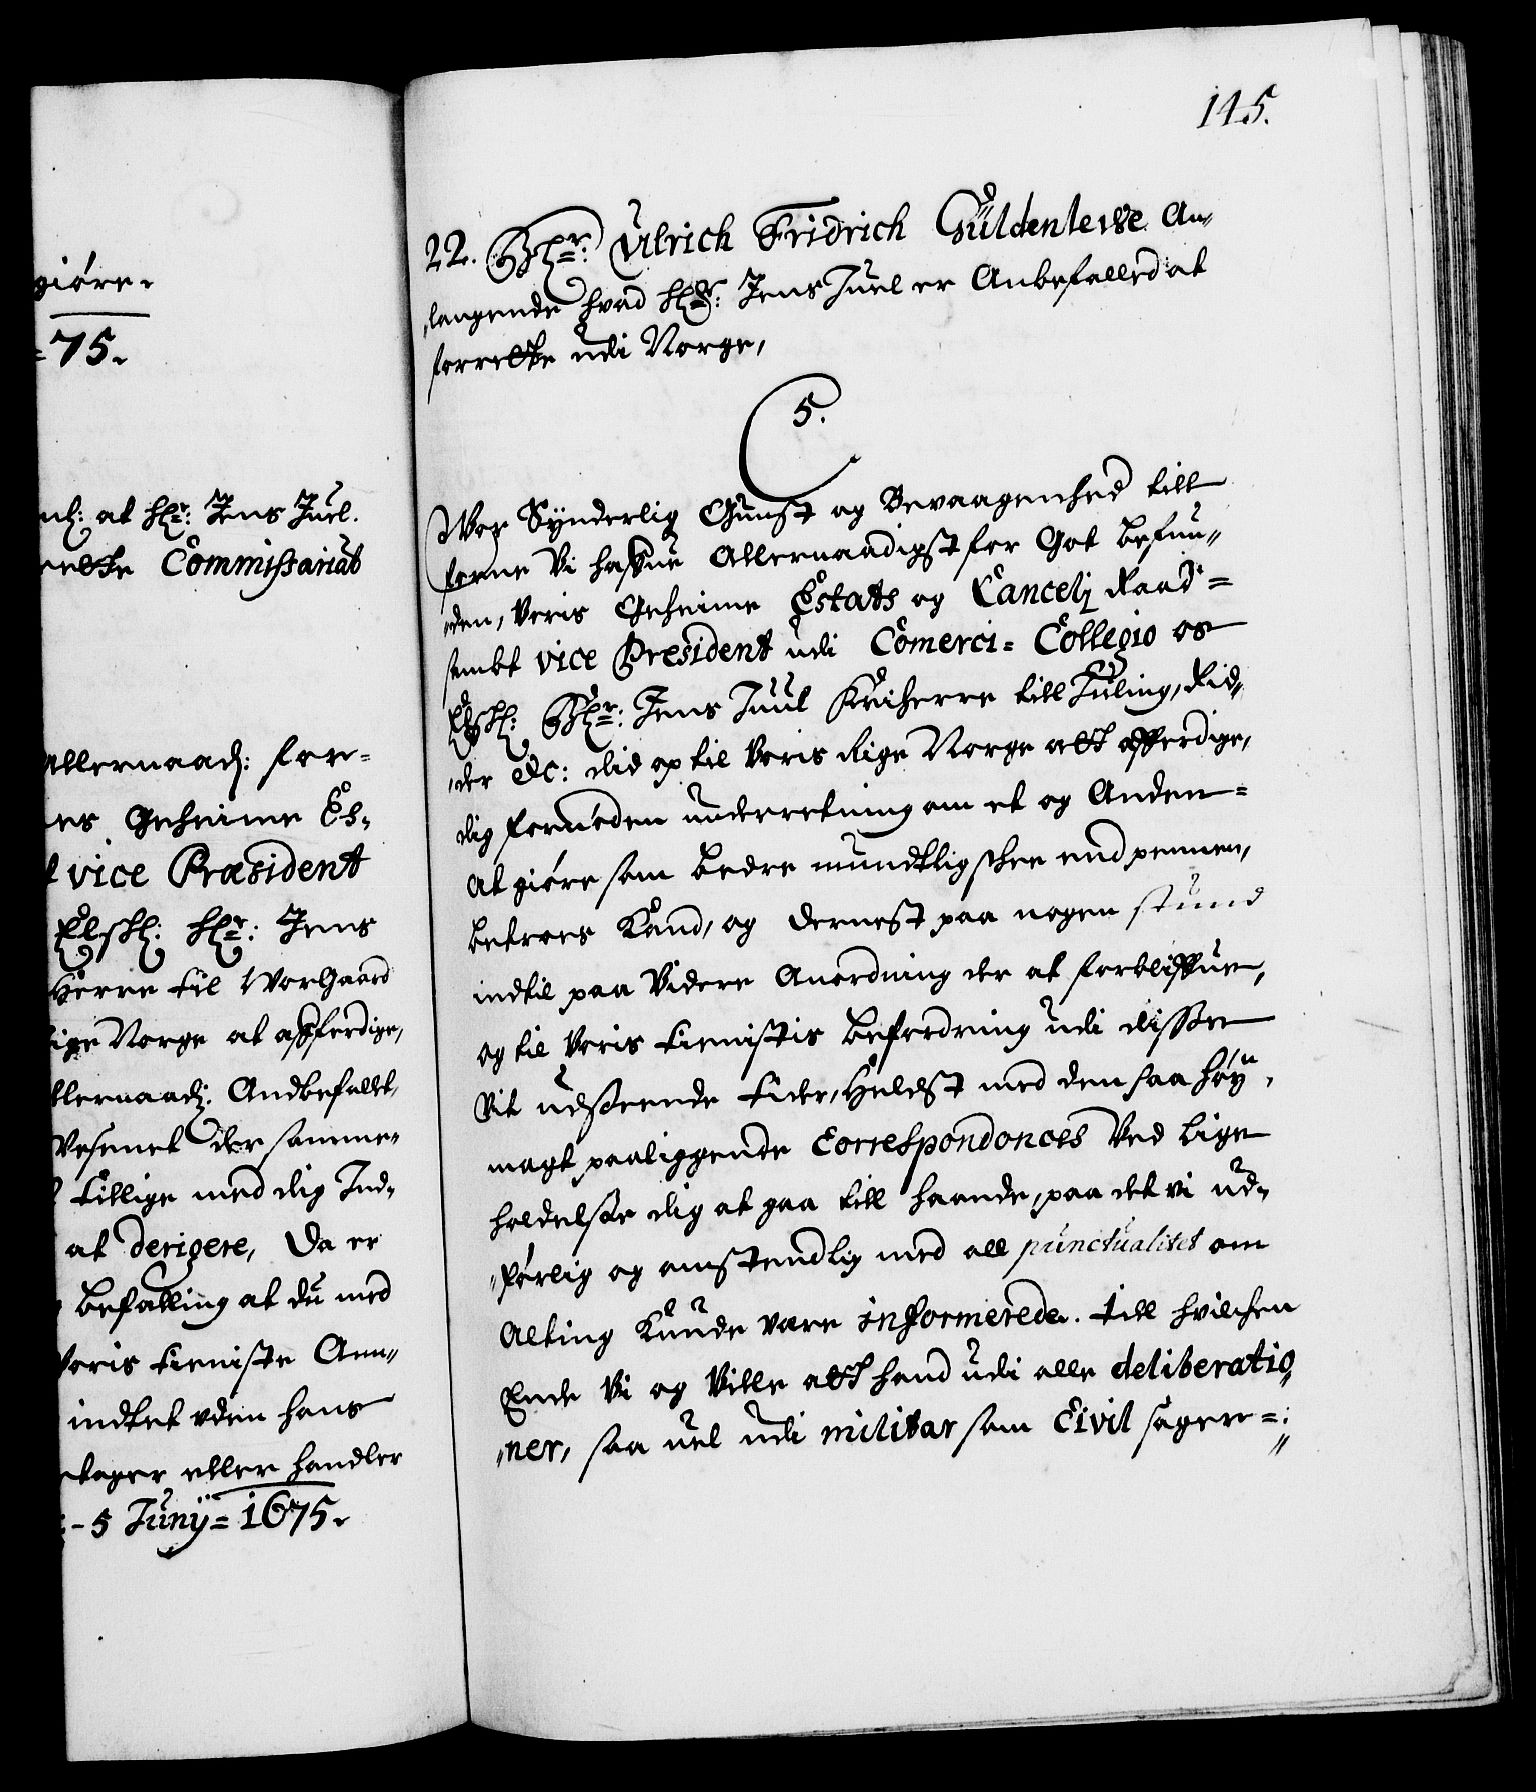 giöre.
=75.
at Hr: Jens Juel.
rette Commissariat
Allernaad: for=
es Geheime Es-
t vice Præsident
Elskl: Hr: Jens
Herre til Worgaard
ige Norge at affferdige,
llernaad: Andbefallet,
Vesenet der samme-
tillige med dig Ind-
at derigere, Da er
befalling at du med
Voris tieniste Ann-
indtet uden hans
etager eller handler
- 5 Junÿ = 1675.
145.
22. Hr: Ulrich Fridrich Güldenlewe An-
langende hvad Hr: Jens Juel er Anbefalled at
forrette udi Norge,
5.
Wor Synderlig Gunst og Bevaagenhed till
forne Vi haffue Allernaadigst for Got befun-
den, Voris Geheime Estats og Cancelj Raad=
sambt vice President udi Comerci=Collegio os
Elskl: Hr: Jens Juul Friherre till Juling, Rid-
der &c: did op til Voris Rige Norge att afferdige,
dig fornöden underretning om et og Anden=
At giöre som bedre mundtlig skee end pennen,
betroes Kand, og dernest paa nogen stund
indtil paa Videre Anordning der at forbliffue,
og til Voris tienistis befordring udi disse
vit udseende tider, Helst med den saa höÿ-
magt paaliggende Correspondonces Ved lige
holdelse dig at gaa till haande, paa det vi ud-
förlig og omstendlig med all punctualitet om
Alting Kunde være informerede. till hvilchen
Ende Vi og Ville att hand udi alle deliberatio-
ner, saa vel udi militar som Civil sager=: